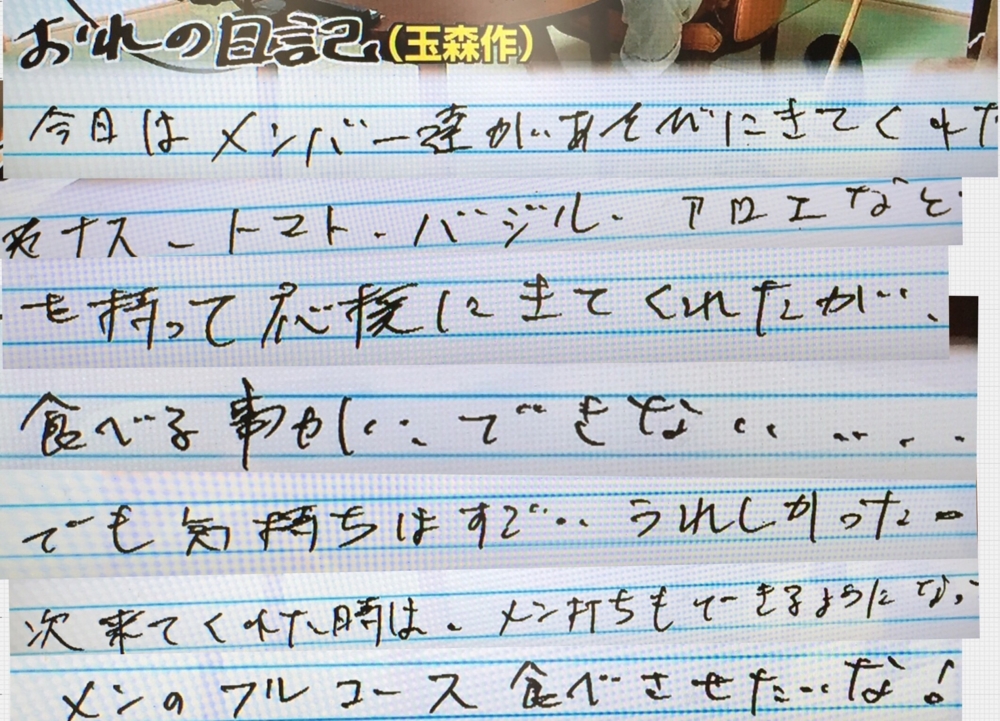 おれの日記(玉森作)
今日はメンバー達があそびにきてくれた
ナス－トマト・バジル・アロエなど
も持って応援にきてくれたが、
食べる事が…できない……
でも気持ちはすごいうれしかった。
次来てくれた時は、メン打ちもできるようになっ
メンのフルコース食べさせたいな！